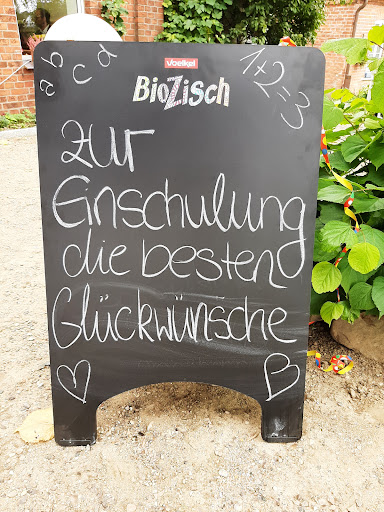 a b c d
Voelkel
BioZisch
1+2=3
zur
Einschulung
die besten
Glückwünsche